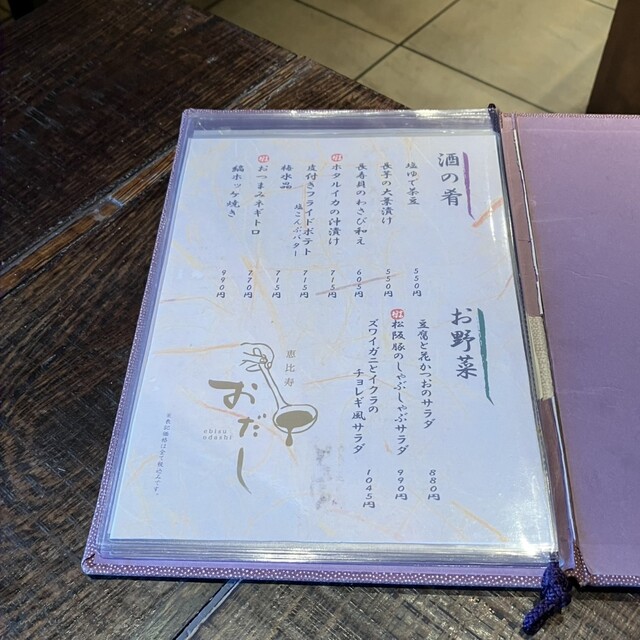 酒の肴
塩ゆで茶豆 550円
長芋の大葉漬け 550円
長寿貝のわさび和え 605円
ホタルイカの汁漬け 715円
皮付きフライドポテト 715円
塩こぶバター
梅水晶 715円
おつまみネギトロ 770円
縞ホッケ焼き 990円
お野菜
豆腐と花かつおのサラダ 880円
松阪豚のしゃぶしゃぶサラダ 990円
ズワイガニとイクラの
チョレギ風サラダ 1045円
恵比寿
おだし
ebisu
odashi
※表記価格は全て税込みです。